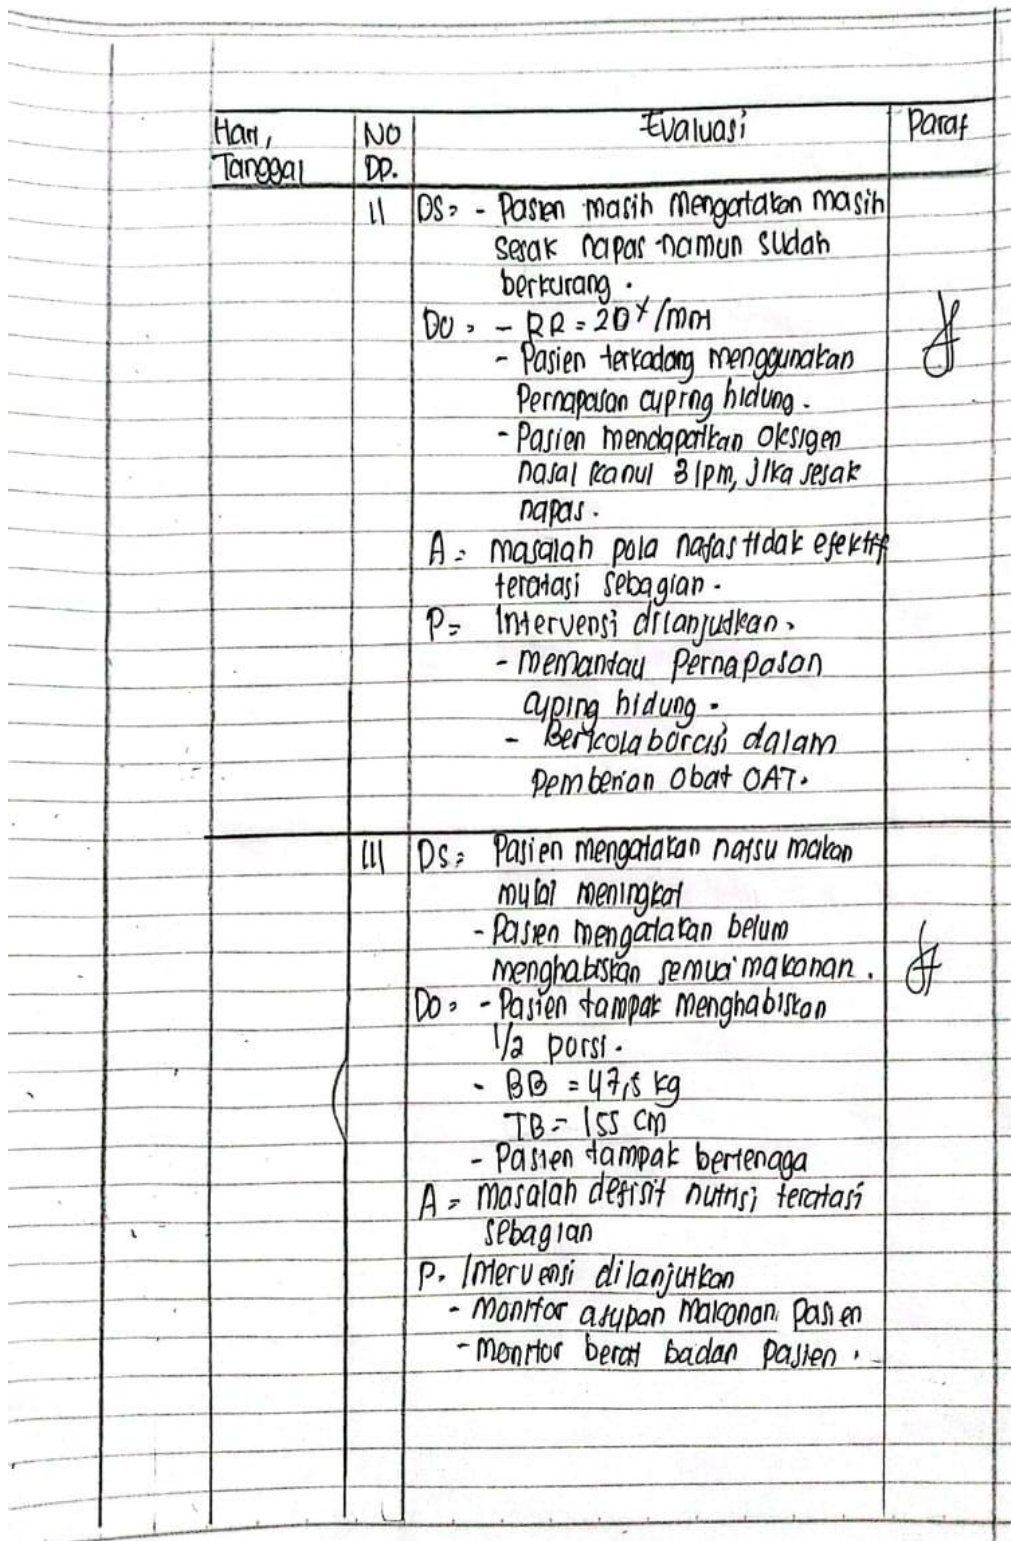 Hari, NO Evaluasi Paraf
Tanggal DP.
II DS = - Pasien masih mengatakan masih
sesak napas namun sudah
berkurang.
DO = - RR = 20x/mnt
- Pasien terkadang menggunakan
Pernapasan cuping hidung.
- Pasien mendapatkan Oksigen
nasal kanul 3 lpm, jika sesak
napas.
A = masalah pola nafas tidak efektif
teratasi sebagian.
P = Intervensi dilanjutkan.
- memantau Pernapasan
cuping hidung.
- Berkolaborasi dalam
Pemberian Obat OAT.
III DS = Pasien mengatakan nafsu makan
mulai meningkat
- Pasien mengatakan belum
menghabiskan semua makanan.
DO = - Pasien tampak menghabiskan
1/2 porsi.
- BB = 47,5 kg
TB = 155 cm
- Pasien tampak bertenaga
A = masalah defisit nutrisi teratasi
sebagian
P. Intervensi dilanjutkan
- Monitor asupan Makanan Pasien
- Monitor berat badan Pasien.